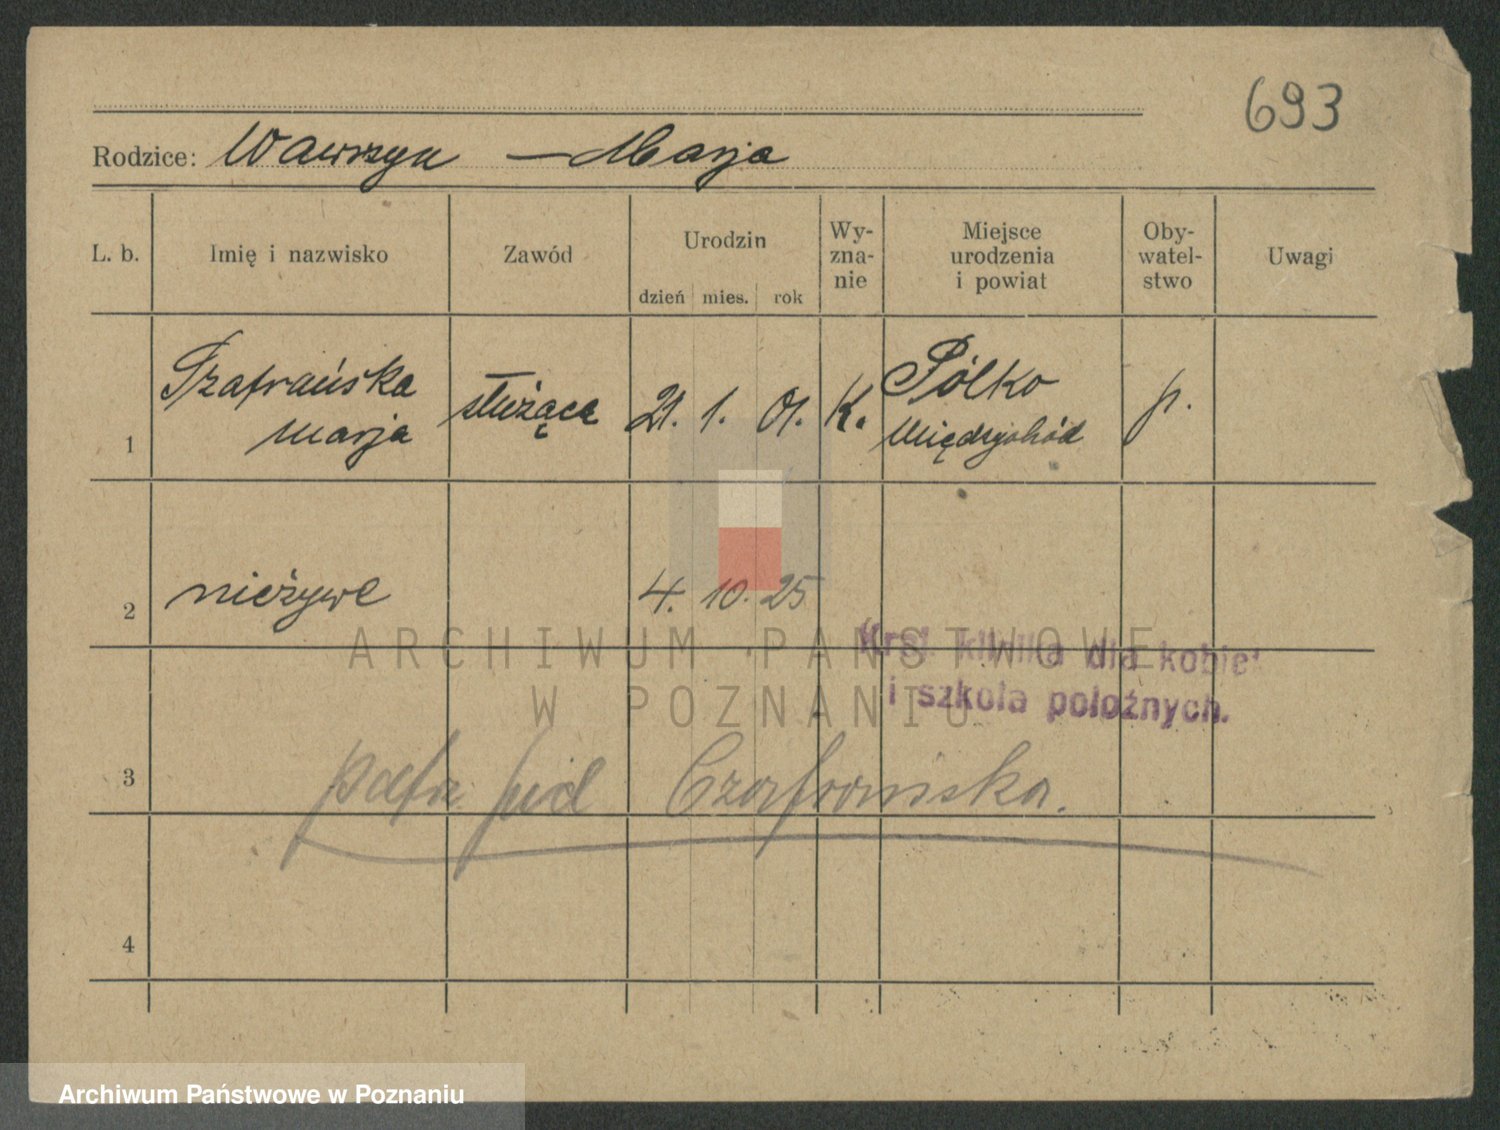 693
Rodzice: Wawrzyn — Marja
L. b. Imię i nazwisko Zawód Urodzin dzień mies. rok Wy- zna- nie Miejsce urodzenia i powiat Oby- watel- stwo Uwagi
Szafrańska służąca 21. 1. 01. K. Pólko p.
1 Marja Międzychód
2 nieżywe 4. 10. 25
ARCHIWUM PAŃSTWOWE
W POZNANIU
klinika dla kobiet
i szkoła położnych.
3 Czafrańska.
4
Archiwum Państwowe w Poznaniu